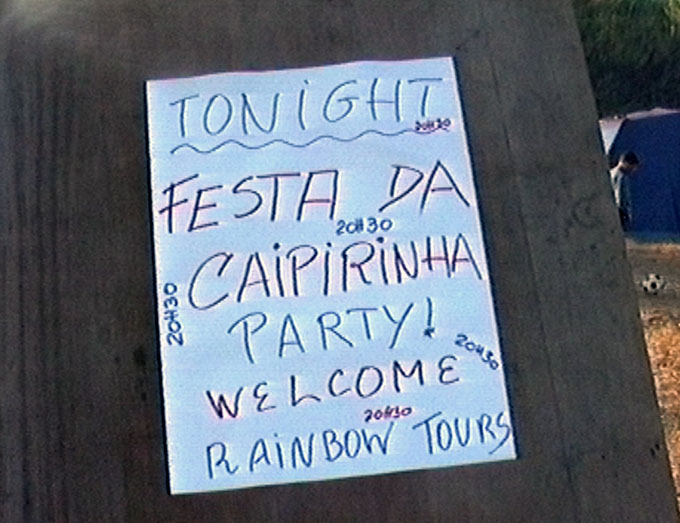 TONIGHT
20H30
FESTA DA
20H30
CAIPIRINHA
20H30
PARTY!
20H30
WELCOME
20H30
RAINBOW TOURS